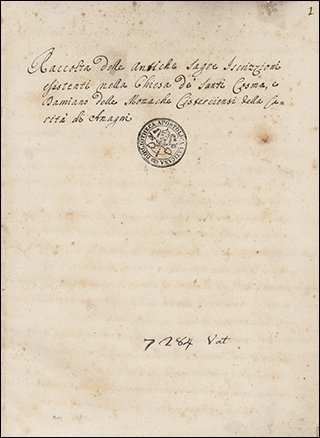 1
Raccolta delle Antiche Sagre Iscrizzioni
esistenti nella Chiesa de Santi Cosma, e
Damiano delle Monache Cisterciensi della Ca-
rità di Anagni
BIBLIOTHECA APOSTOLICA VATICANA
7284 Vat